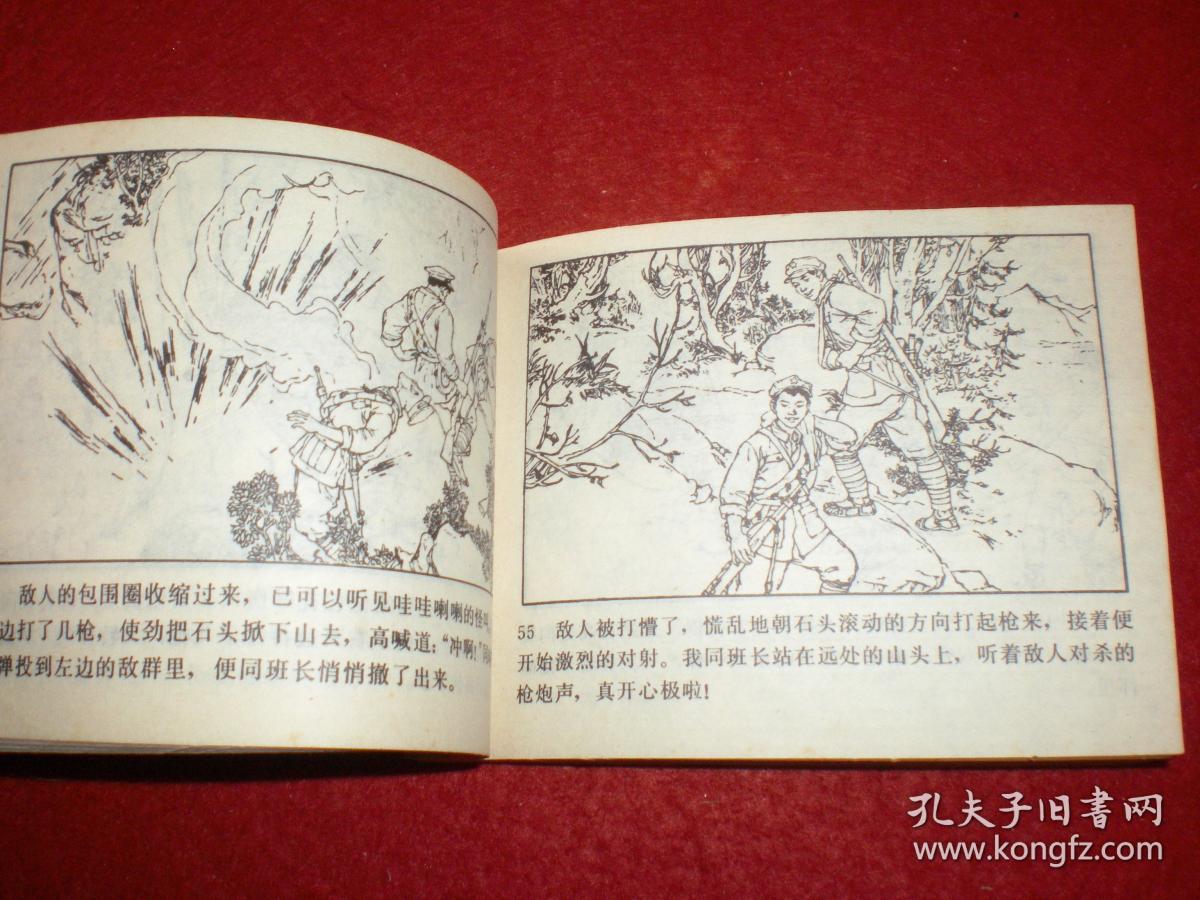 敌人的包围圈收缩过来，已可以听见哇哇喇喇的怪叫
边打了几枪，使劲把石头掀下山去，高喊道：“冲啊！”
弹投到左边的敌群里，便同班长悄悄撤了出来。
55 敌人被打懵了，慌乱地朝石头滚动的方向打起枪来，接着便
开始激烈的对射。我同班长站在远处的山头上，听着敌人对杀的
枪炮声，真开心极啦！
孔夫子旧書网
www.kongfz.com